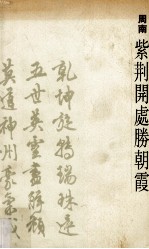 周南
紫荊開處勝朝霞
乾坤旋轉瑞珠還
五世英靈盡解顏
莫道神州豪